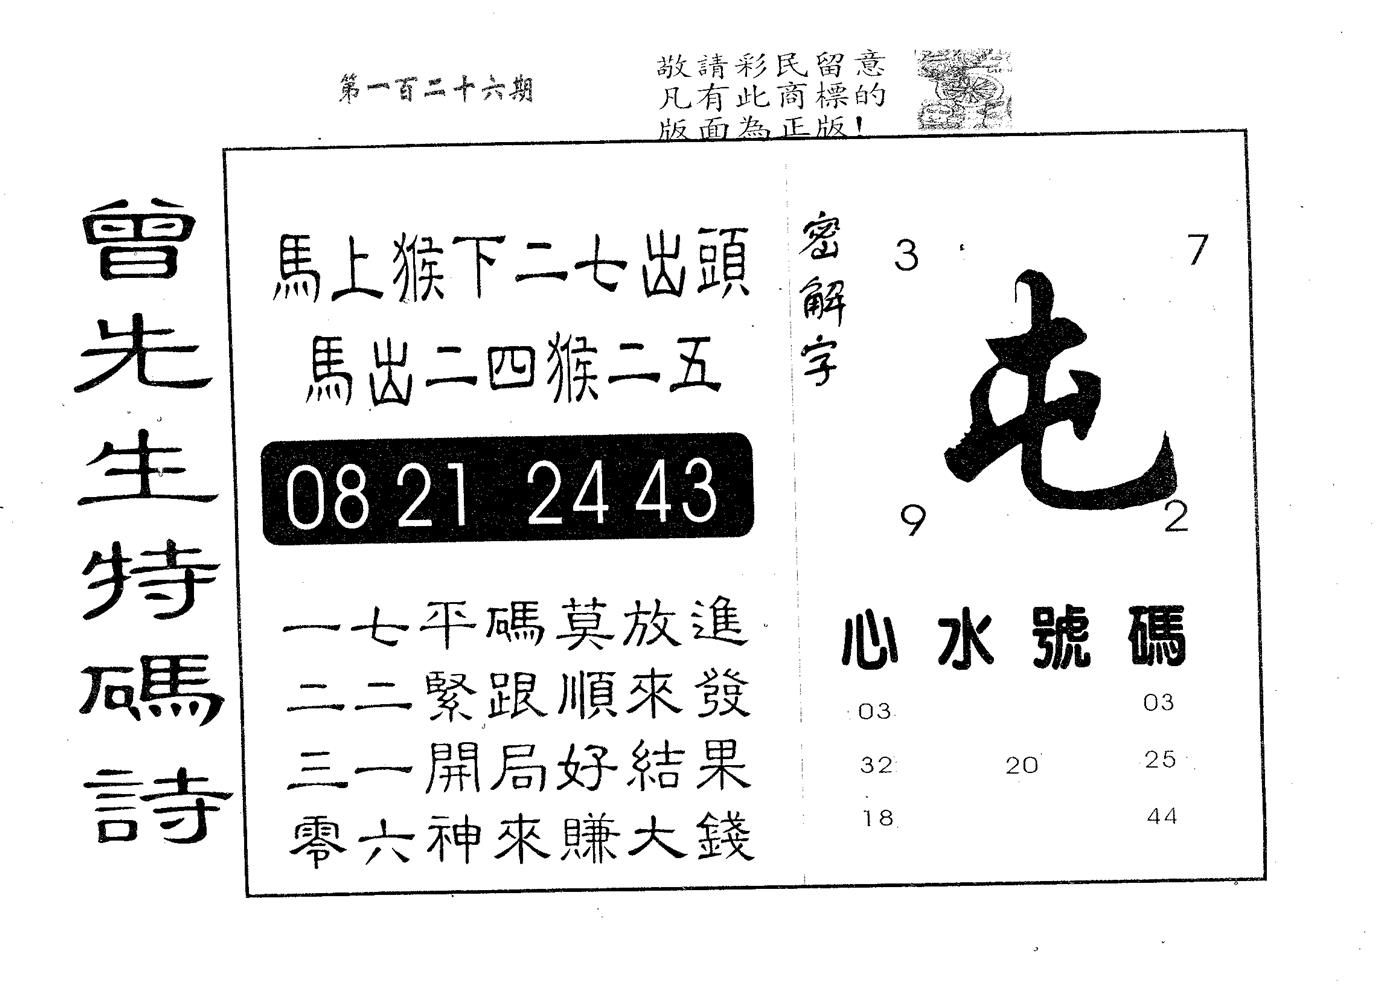 第一百二十六期
敬請彩民留意
凡有此商標的
版面為正版!
曾先生特碼詩
馬上猴下二七出頭
馬出二四猴二五
08 21 24 43
一七平碼莫放進
二二緊跟順來發
三一開局好結果
零六神來賺大錢
密解字
3 7
屯
9 2
心水號碼
03 03
32 20 25
18 44